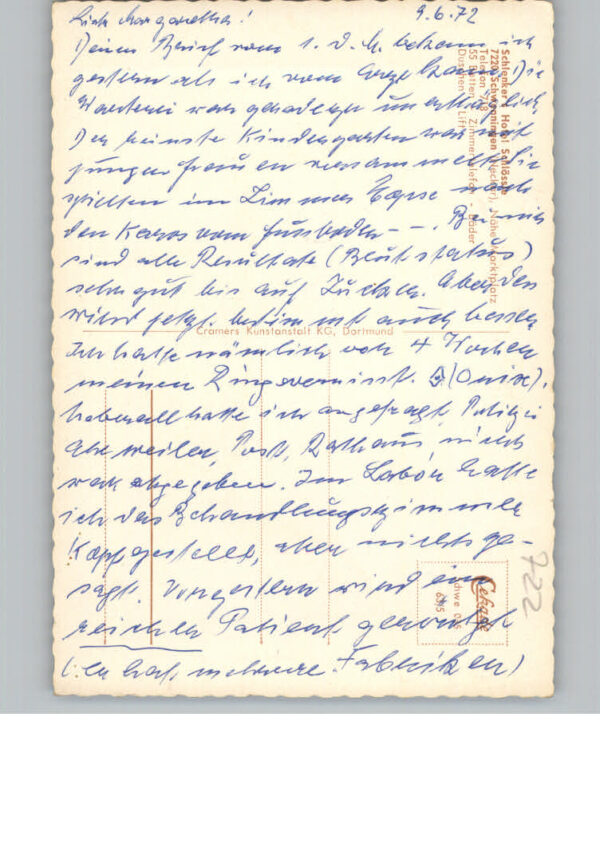 Lieb Margaretha! 9.6.72
Deinen Brief vom 1. d. M. bekam ich
gestern als ich vom Arzt kam. Die
Warterei war geradezu unerträglich.
Der reinste Kindergarten war mit
jungen Frauen versammelt. Sie
spielten im Zimmer nach
den Karos vom Fussboden - - . Bei mir
sind alle Resultate (Blutstatus)
sehr gut bis auf Zucker. Aber der
wird jetzt bestimmt auch besser
Ich hatte nämlich vor 4 Wochen
meinen Ring vermisst. (Onix).
Überall hatte ich angefragt, Polizei
Post, Rathaus, nichts
war abgegeben. Im Labor hatte
ich das Behandlungszimmer
Kopf gestellt, aber nichts ge-
sagt. Vorgestern wird ein
reicher Patient
(er hat mehrere Fabriken)
Schlenker's Hotel Schlössle
7220 Schwenningen (Neckar), Nähe Marktplatz
Telefon
55 Betten - Zimmertelefon - Bäder
Duschen - Lift
Cramers Kunstanstalt KG, Dortmund
Cekade
6/5
722